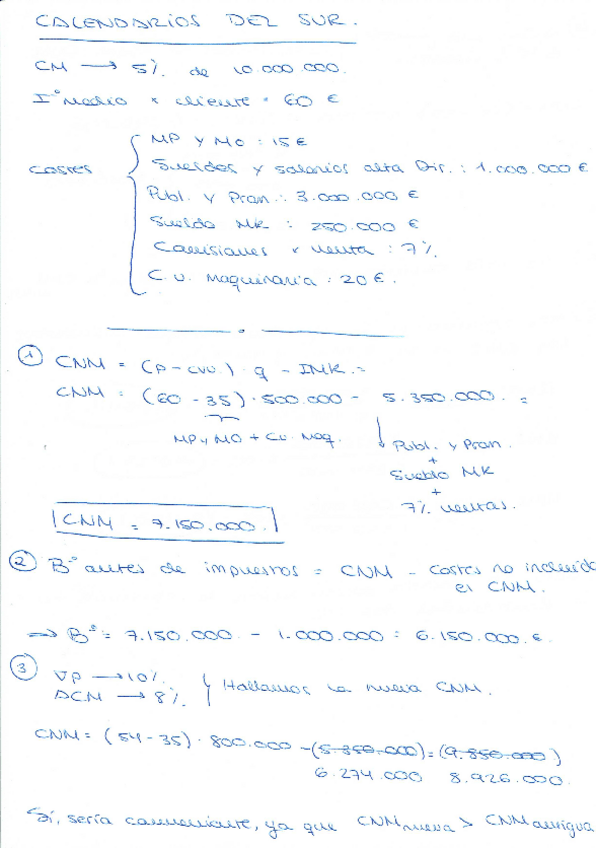 CALENDARIOS DEL SUR.
CM → 5% de 10.000.000.
I° medio x cliente = 60 €
Costes
MP y MO : 15 €
Sueldos y salarios alta Dir. : 1.000.000 €
Publ. y Prom. : 3.000.000 €
Sueldo MK : 250.000 €
Comisiones x venta : 7%
C.U. Maquinaria : 20 €.
① CNM = (p - CVU.) · q - IMK. =
CNM = (60 - 35) · 500.000 - 5.350.000. =
MP y MO + Cu. Maq.
↓ Publ. y Prom.
+
Sueldo MK
+
7% ventas.
CNM = 7.150.000.
② B° antes de impuestos = CNM - Costes no incluido
el CNM.
→ B° = 7.150.000 - 1.000.000 = 6.150.000 €.
③ VP → 10%
DCM → 8%
Hallamos la nueva CNM.
CNM = (54 - 35) · 800.000 - (5.350.000) = (9.850.000)
6.274.000 8.926.000.
Sí, sería conveniente, ya que CNM nueva > CNM antigua